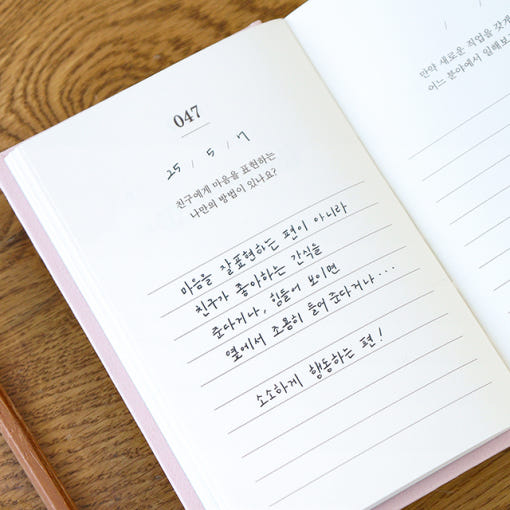 047
25 / 5 / 7
친구에게 마음을 표현하는
나만의 방법이 있나요?
마음을 잘표현하는 편이 아니라
친구가 좋아하는 간식을
준다거나, 힘들어 보이면
옆에서 조용히 들어준다거나...
소소하게 행동하는 편!
/ /
만약 새로운 직업을 갖게
어느 분야에서 일해보